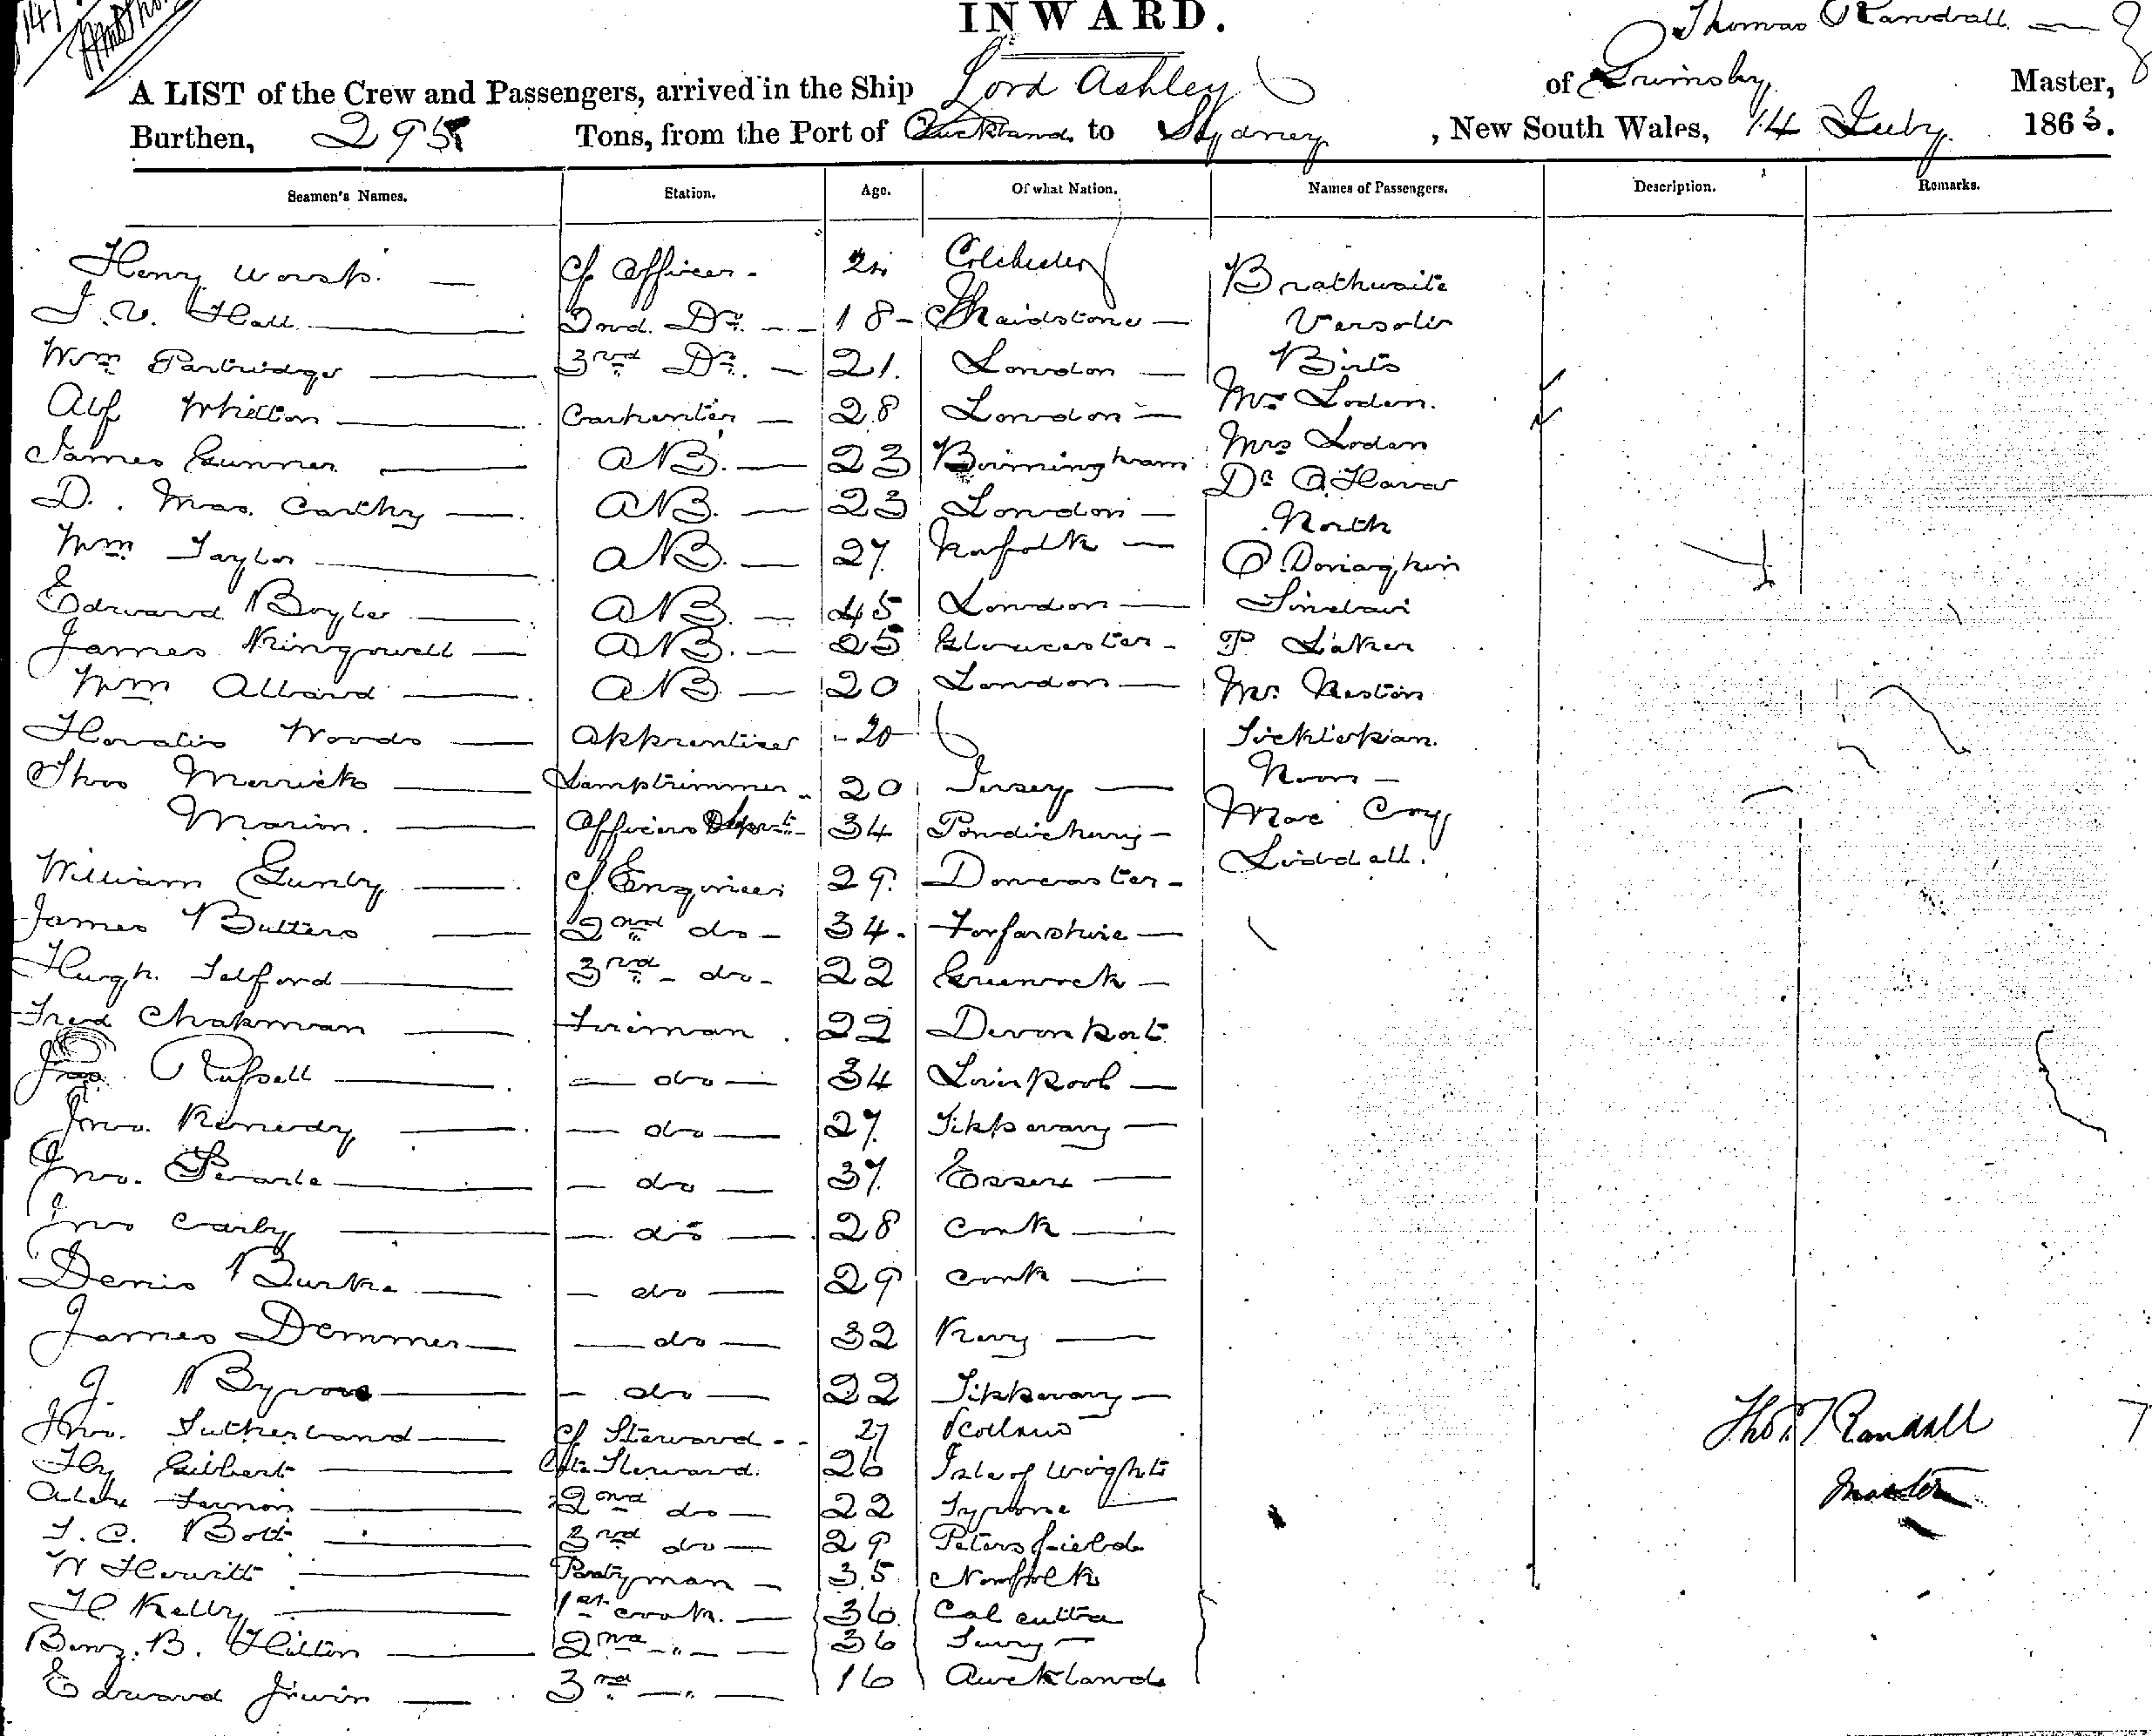 INWARD.
Thomas Randall
A LIST of the Crew and Passengers, arrived in the Ship Lord Ashley of Grimsby Master,
Burthen, 295 Tons, from the Port of Auckland to Sydney, New South Wales, 14 July 1863.
Seamen's Names. Station. Age. Of what Nation. Names of Passengers. Description. Remarks.
Henry Worsp. Cf Officer 24 Colchester Brathwaite
J. V. Hall 2nd. Do. 18 Maidstone
Wm Partridge 3rd Do. 21. London Birts
Alf Whitton Carpenter 28 London Mr Loden.
James Gunner AB. 23 Birmingham Mrs Loden
D. Mac. Carthy AB. 23 London Dr
Wm Taylor AB. 27 Norfolk North
Edward Boyler AB. 45 London O.Donaghin
James Kingswell AB. 25 Gloucester Sinclair
Wm Allard AB 20 London P Laker
Horatio Woods Apprentice 20 Mr. Neston
Thos Merrick Lamptrimmer 20 Jersey
Marion. Officers 34 Pondicherry Noon
William Gunby Cf Engineer 29. Doncaster Mac Coy
James Butters 2nd do 34. Forfarshire Liddall.
Hugh. Telford 3rd do 22 Greenock
Fred Chapman Fireman 22 Devonport
Russell do 34 Liverpool
Jno. Kennedy do 27. Tipperary
Jno. Searle do 37. Essex
Jno Carby do 28 Cork
Denis Burke do 29 Cork
James Demmer do 32 Kerry
J Byrone do 22 Tipperary
Jno. Sutherland Cf Steward 27 Scotland Thos Randall
Hy Gilbert Steward. 26 Isle of Wight Master
Alex Fernon 2nd do 22 Tyrone
T. C. Bott 3rd do 29 Petersfield
W Hewitt Pantryman 35 Norfolk
H Kelly 1st cook. 36. Calcutta
Benj. B. Hilton 2nd " 36 Surry
Edward Irwin 3rd " 16 Auckland